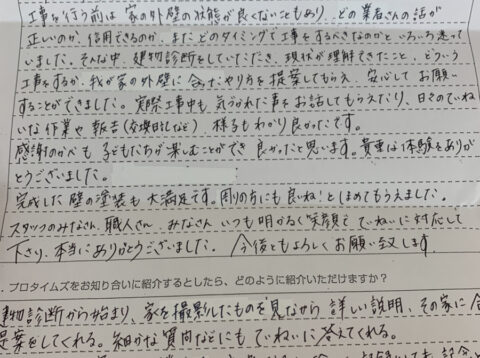 工事を行う前は家の外壁の状態が良くないこともあり、どの業者さんの話が
正しいのか、信用できるのか、またどのタイミングで工事をするべきなのかといろいろ迷って
いました。そんな中、建物診断をしていただき、現状が理解できたこと、どういう
工事をするか、我が家の外壁に合ったやり方を提案してもらえ、安心してお願い
することができました。実際工事中も気づかれた事をお話してもらえたり、日々のていね
いな作業や報告(交換日記など)、様子もわかり良かったです。
感謝のかべも子どもたちが楽しむことができ良かったと思います。貴重な体験をありが
とうございました。
完成した壁の塗装も大満足です。周りの方にも良いね!とほめてもらえました。
スタッフのみなさん、職人さん、みなさんいつも明かるく笑顔でていねいに対応して
下さり、本当にありがとうございました。今後ともよろしくお願い致します。
プロタイムズをお知り合いに紹介するとしたら、どのように紹介いただけますか?
建物診断から始まり、家を撮影したものを見ながら詳しい説明、その家に合
提案をしてくれる。細かな質問などにもていねいに答えてくれる。